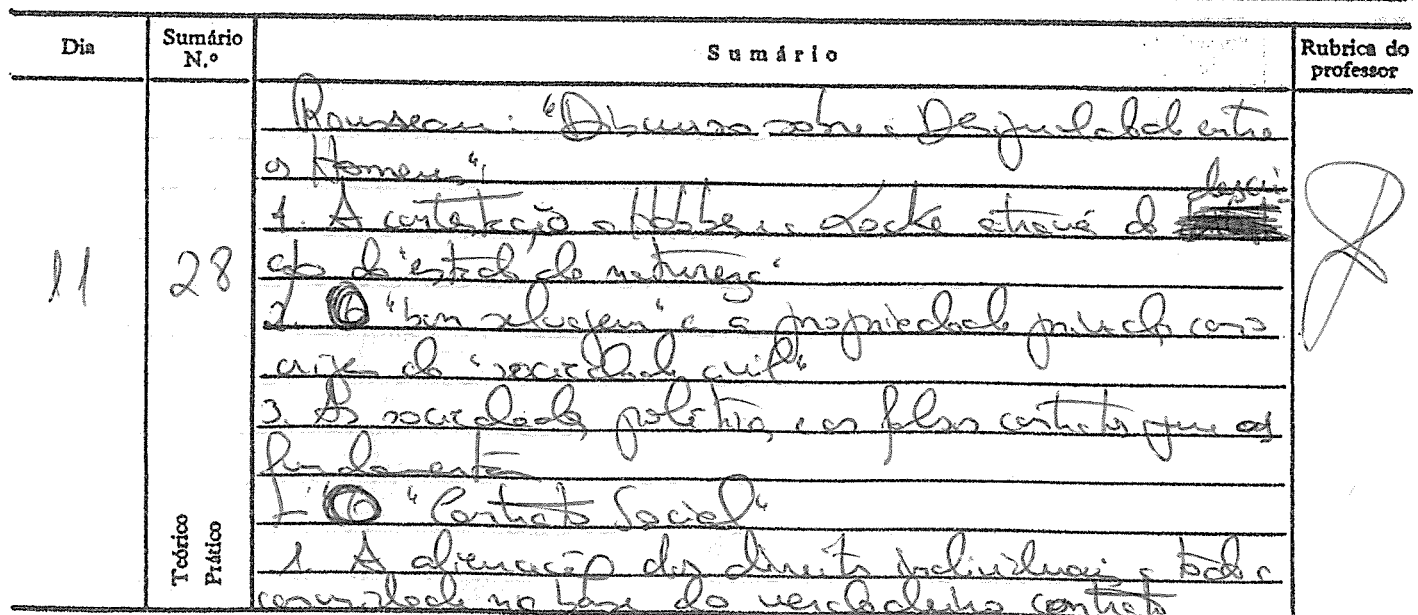 Dia Sumário N.º Sumário Rubrica do professor
Rousseau: "Discurso sobre a Desigualdade entre
os Homens".
1. A contestação a Hobbes e a Locke através da descri-
ção do "estado de natureza"
2. O "bom selvagem" e a propriedade privada como
origem da "sociedade civil"
11 28
3. As sociedades políticas e os falsos contratos que as
fundamentam
O "Contrato Social"
1. A alienação dos direitos individuais a toda a
comunidade na base do verdadeiro contrato
Teórico
Prático